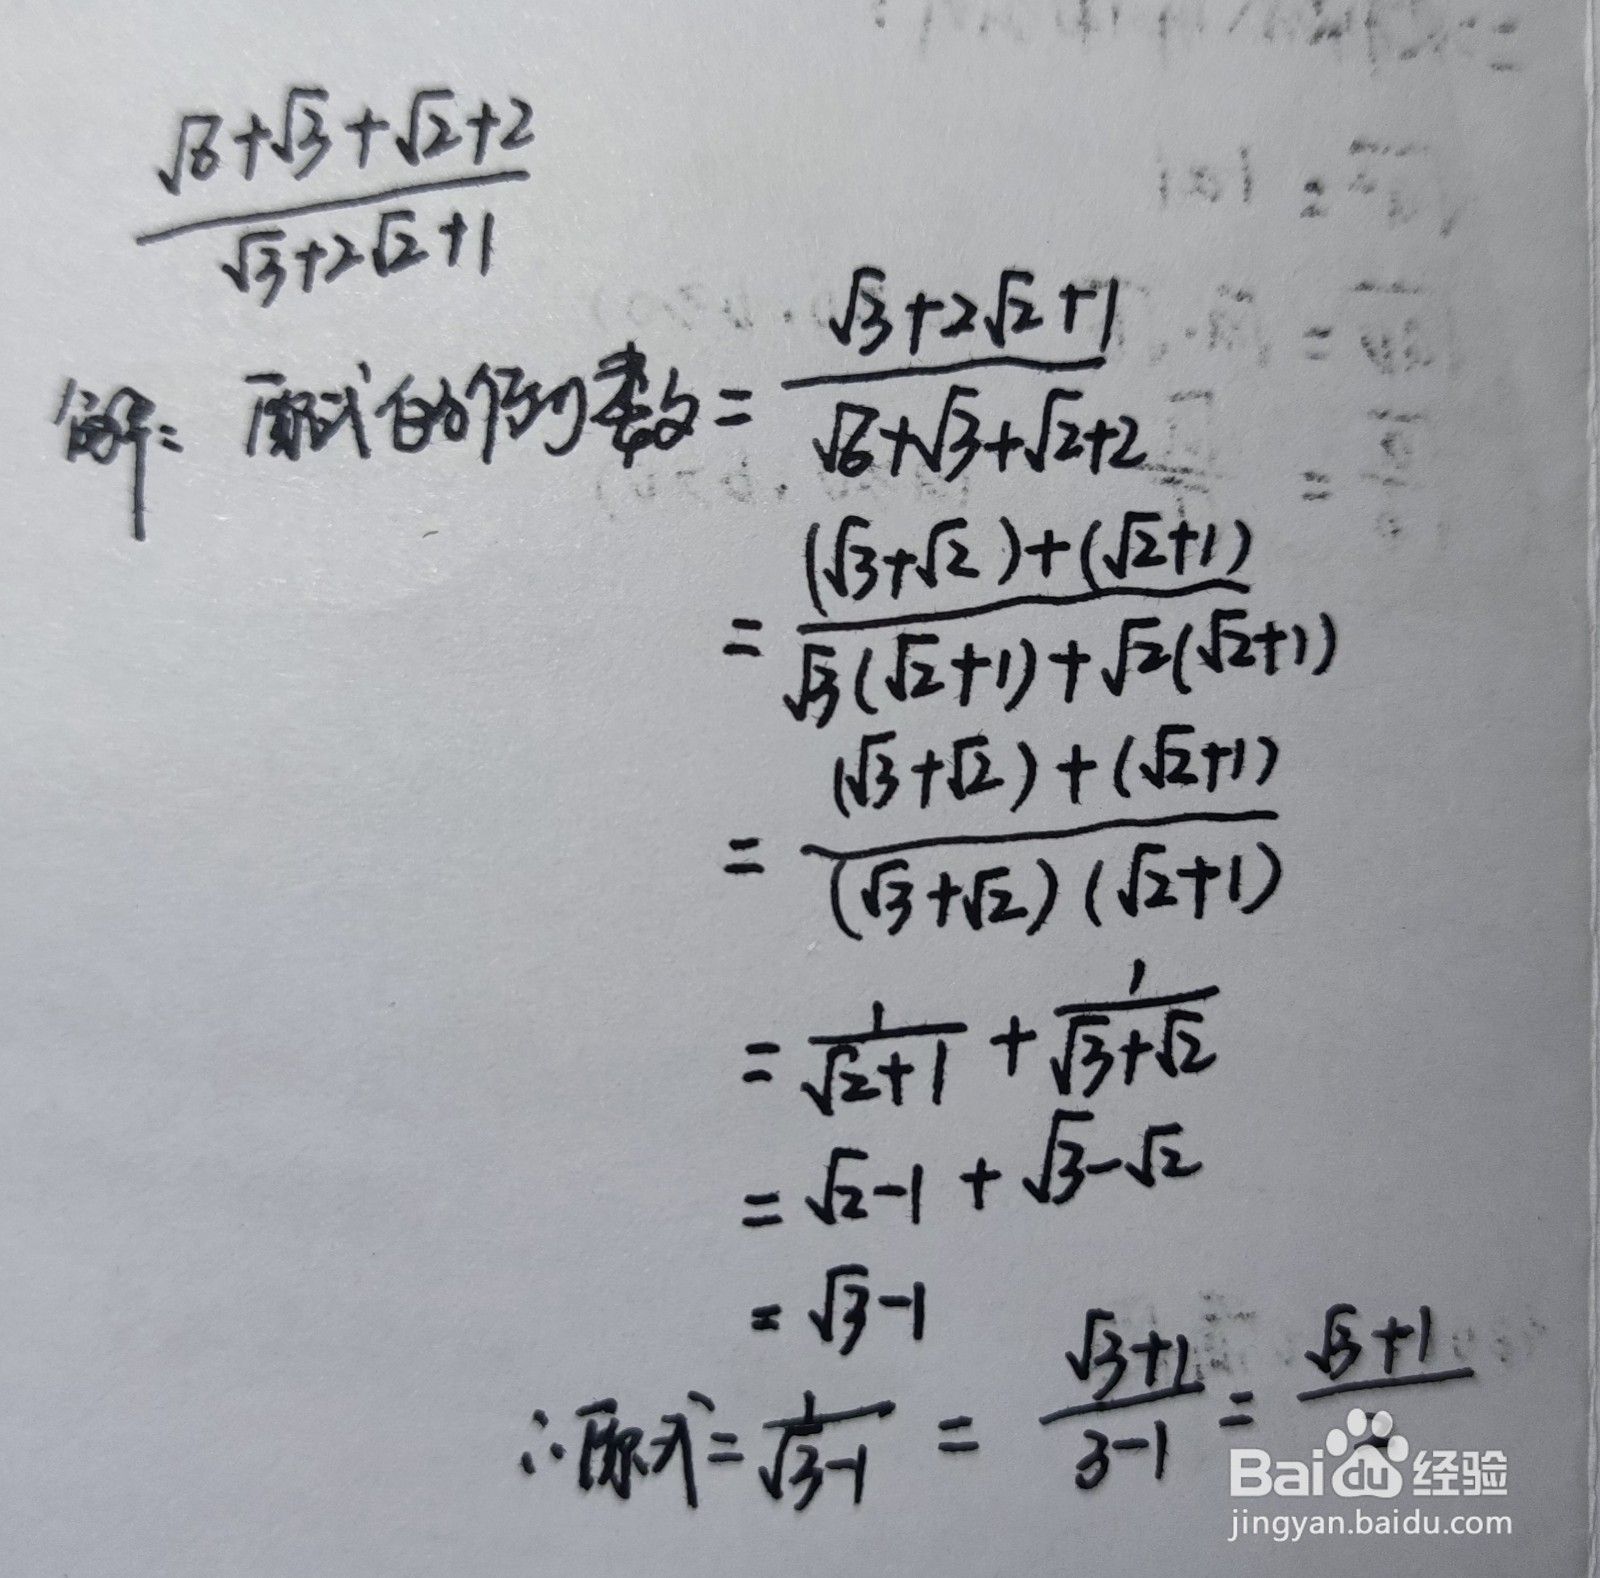 √6+√3+√2+2
√3+2√2+1
解: 原式的倒数 = (√3+2√2+1)/(√6+√3+√2+2)
= ((√3+√2)+(√2+1))/(√3(√2+1)+√2(√2+1))
= ((√3+√2)+(√2+1))/((√3+√2)(√2+1))
= 1/(√2+1) + 1/(√3+√2)
= √2-1+√3-√2
= √3-1
∴原式 = 1/(√3-1) = (√3+1)/(3-1) = (√3+1)/2
Baidu经验
jingyan.baidu.com